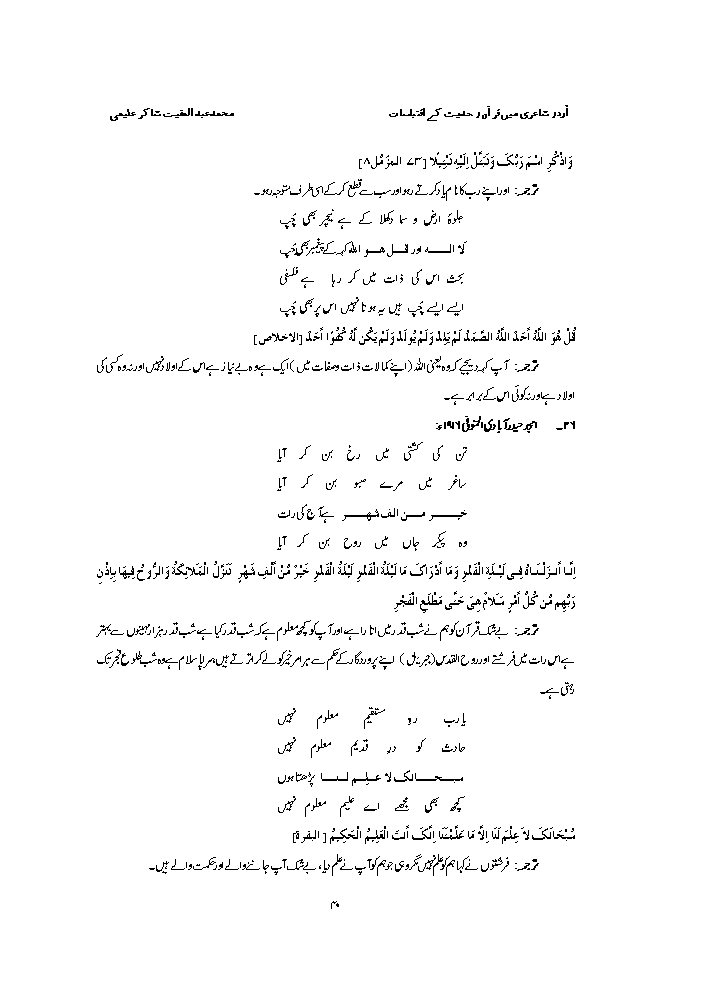 اُردو شاعری میں قرآن و حدیث کے اقتباسات محمد عبدالمقیت شاکر علیمی
وَاذْكُرِ اسْمَ رَبِّكَ وَتَبَتَّلْ إِلَيْهِ تَبْتِيْلًا [۷۳۔ المزمل ۸]
ترجمہ: اور اپنے رب کا نام یاد کرتے رہو اور سب سے قطع کر کے اسی طرف متوجہ رہو۔
جلوۂ ارض و سما دکھلا کے ہے نیچر بھی چپ
لا الٰـــہ اور قـــل ھـــو اللہ کہہ کے پیغمبر بھی چپ
بحث اس کی ذات میں کر رہا ہے فلسفی
ایسے ایسے چپ ہیں یہ ہوتا نہیں اس پر بھی چپ
قُلْ هُوَ اللَّهُ أَحَدٌ اللَّهُ الصَّمَدُ لَمْ يَلِدْ وَلَمْ يُولَدْ وَلَمْ يَكُن لَّهُ كُفُوًا أَحَدٌ [الاخلاص]
ترجمہ: آپ کہہ دیجیے کہ وہ یعنی اللہ (اپنے کمالات ذات و صفات میں) ایک ہے وہ بے نیاز ہے اس کے اولاد نہیں اور نہ وہ کسی کی
اولاد ہے اور نہ کوئی اس کے برابر ہے۔
۳۶۔ امجد حیدرآبادی المتوفی ۱۹۶۱ء:
تن کی کشتی میں رخ بن کر آیا
ساغر میں مرے صبو بن کر آیا
خیـــر مـــن الف شھـــر ہے آج کی رات
وہ پیکر جاں میں روح بن کر آیا
اِنَّا أَنزَلْنَاهُ فِي لَيْلَةِ الْقَدْرِ وَمَا أَدْرَاكَ مَا لَيْلَةُ الْقَدْرِ لَيْلَةُ الْقَدْرِ خَيْرٌ مِّنْ أَلْفِ شَهْرٍ تَنَزَّلُ الْمَلَائِكَةُ وَالرُّوحُ فِيهَا بِإِذْنِ
رَبِّهِم مِّن كُلِّ أَمْرٍ سَلَامٌ هِيَ حَتَّى مَطْلَعِ الْفَجْرِ
ترجمہ: بے شک قرآن کو ہم نے شب قدر میں اتارا ہے اور آپ کو کچھ معلوم ہے کہ شب قدر کیا ہے، شب قدر ہزار مہینوں سے بہتر
ہے اس رات میں فرشتے اور روح القدس (جبریل) اپنے پروردگار کے حکم سے ہر امر خیر کو لے کر اترتے ہیں سراپا سلام ہے وہ شب طلوع فجر تک
رہتی ہے۔
یارب رہ مستقیم معلوم نہیں
حادث کو در قدیم معلوم نہیں
سبـــحـــانک لا عـلـم لـنـا پڑھتا ہوں
کچھ بھی مجھے اے علیم معلوم نہیں
سُبْحَانَكَ لَا عِلْمَ لَنَا إِلَّا مَا عَلَّمْتَنَا إِنَّكَ أَنتَ الْعَلِيمُ الْحَكِيمُ [البقرة]
ترجمہ: فرشتوں نے کہا ہم کو علم نہیں مگر وہی جو ہم کو آپ نے علم دیا، بے شک آپ جاننے والے اور حکمت والے ہیں۔
۴۰